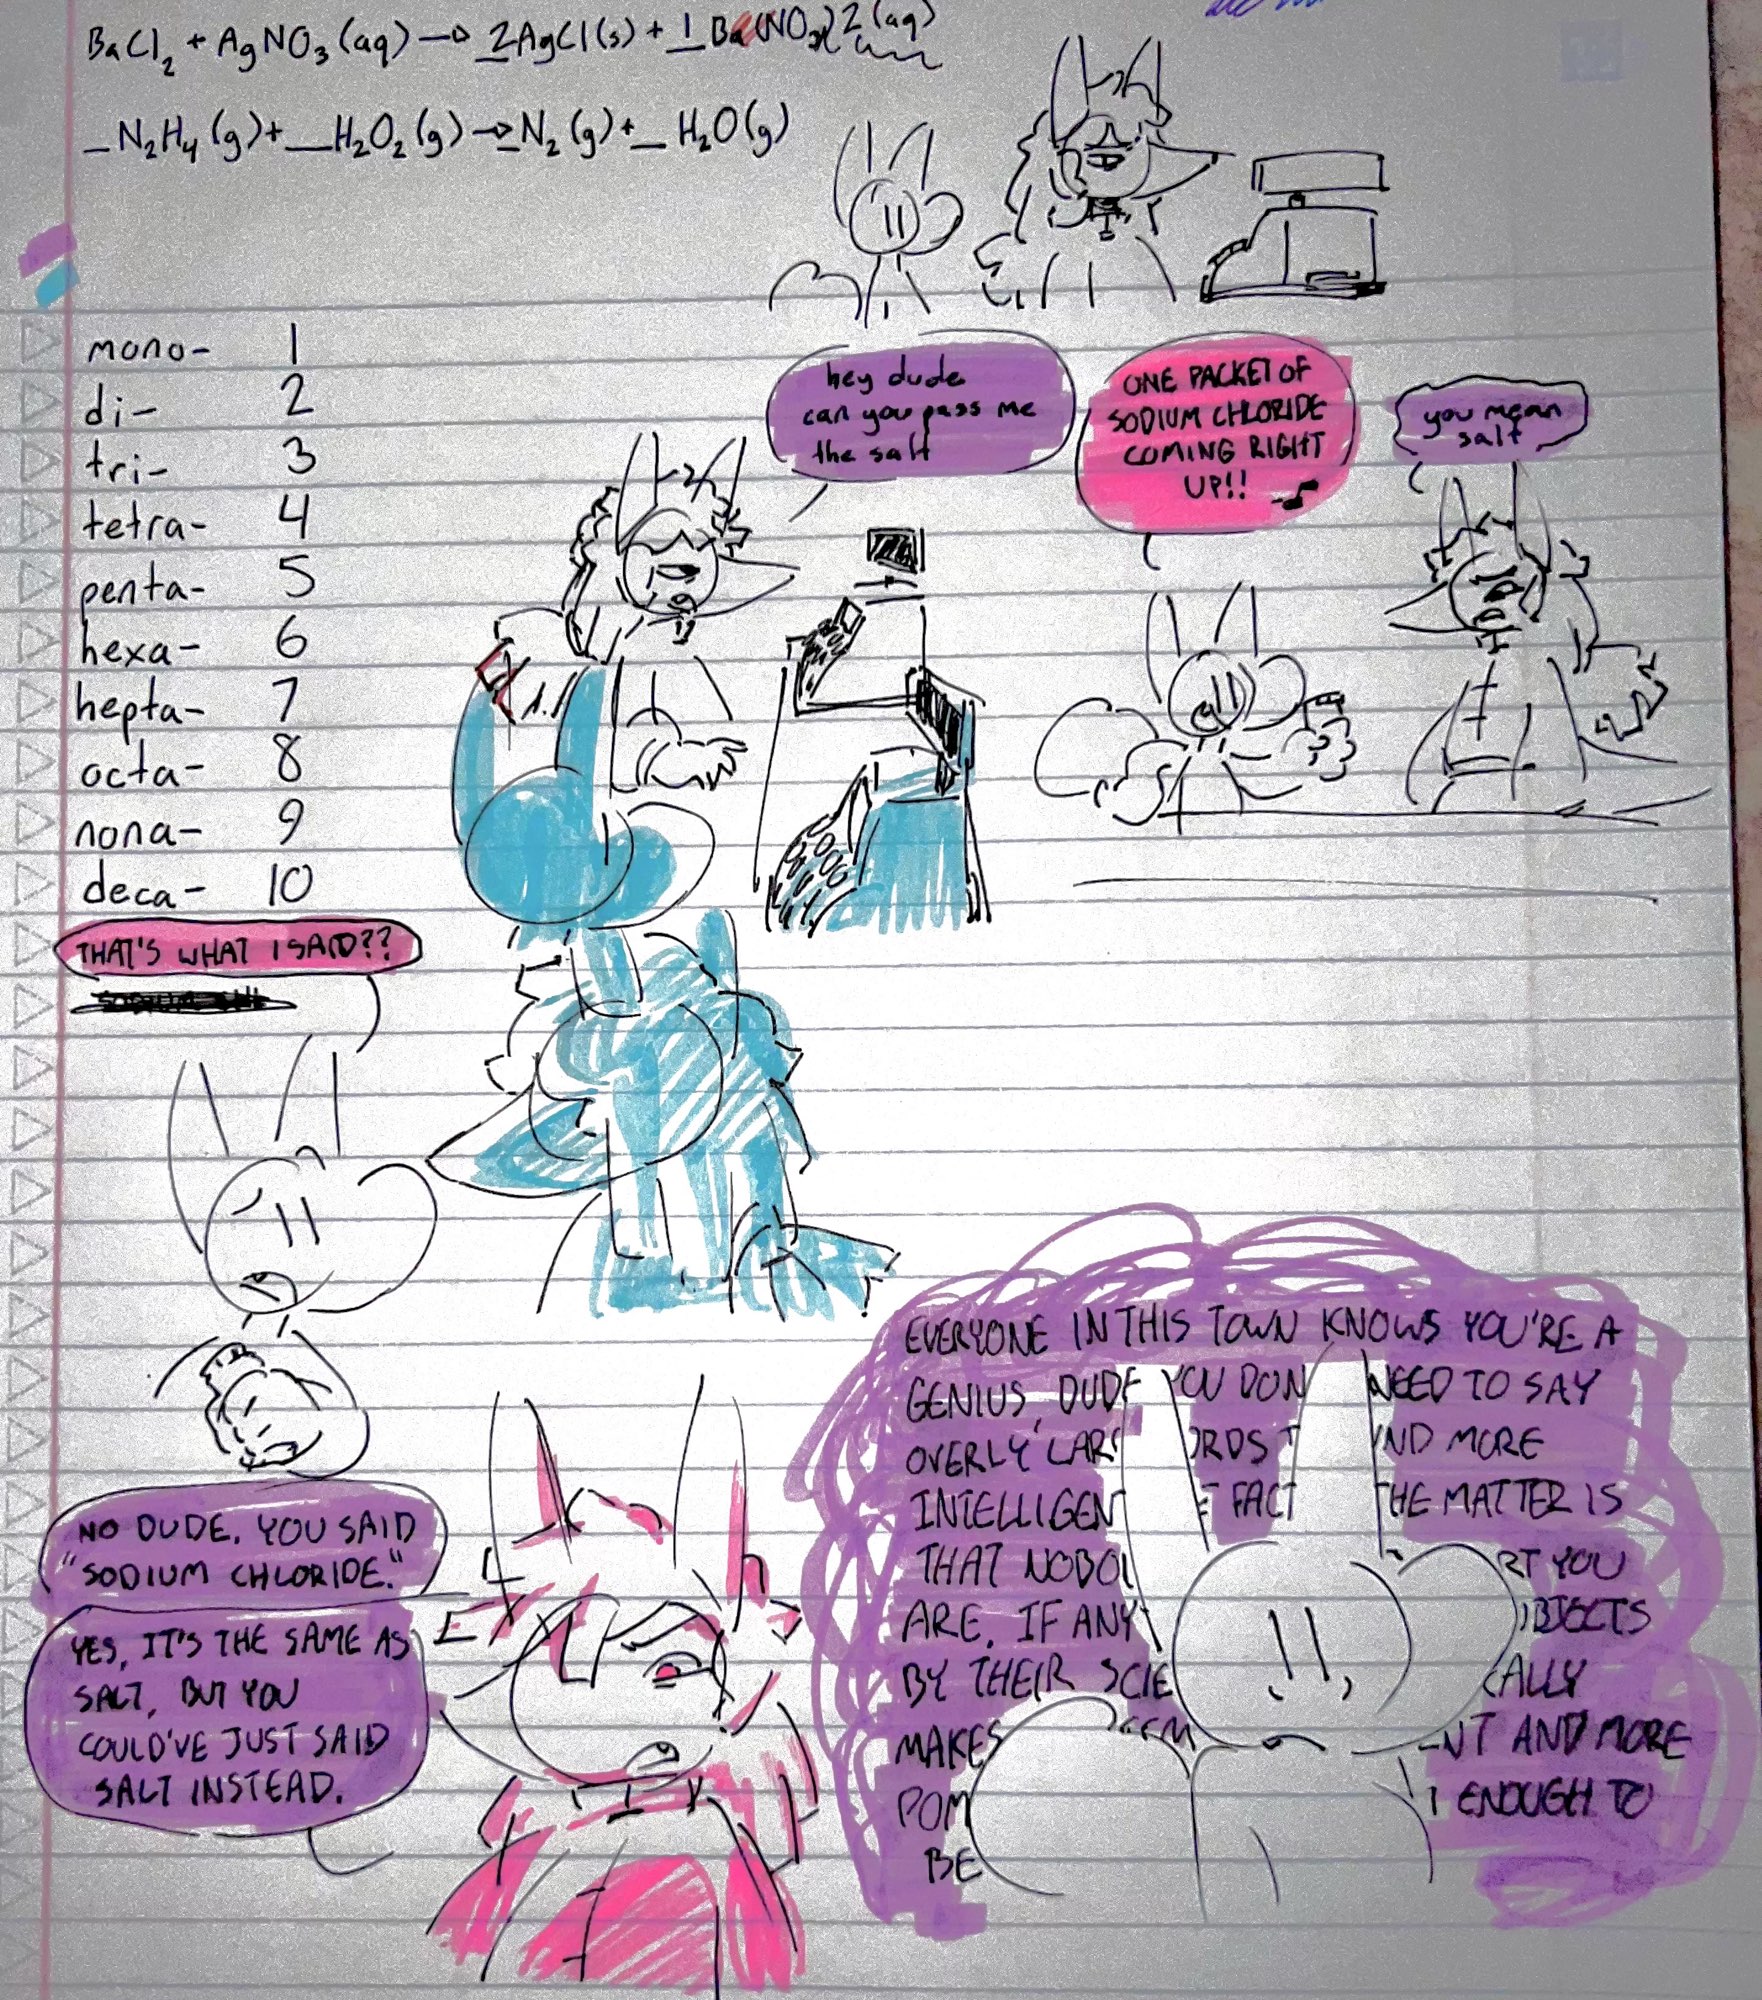 BaCl2 + AgNO3 (aq) → 2AgCl(s) + 1 Ba(NO3)2 (aq)
_N2H4 (g) + __H2O2 (g) → _N2 (g) + _ H2O (g)
mono- 1
di- 2
tri- 3
tetra- 4
penta- 5
hexa- 6
hepta- 7
octa- 8
nona- 9
deca- 10
hey dude
can you pass me
the salt
ONE PACKET OF
SODIUM CHLORIDE
COMING RIGHT
UP!!
you mean
salt
THAT'S WHAT I SAID??
NO DUDE. YOU SAID
"SODIUM CHLORIDE."
YES, IT'S THE SAME AS
SALT, BUT YOU
COULD'VE JUST SAID
SALT INSTEAD.
EVERYONE IN THIS TOWN KNOWS YOU'RE A
GENIUS, DUDE YOU DON NEED TO SAY
OVERLY LAR ORDS T UND MORE
INTELLIGENT E FACT THE MATTER IS
THAT NOBO RT YOU
ARE. IF ANY OBJECTS
BY THEIR SCIE CALLY
MAKES EEM NT AND MORE
POM ENOUGH TO
BE